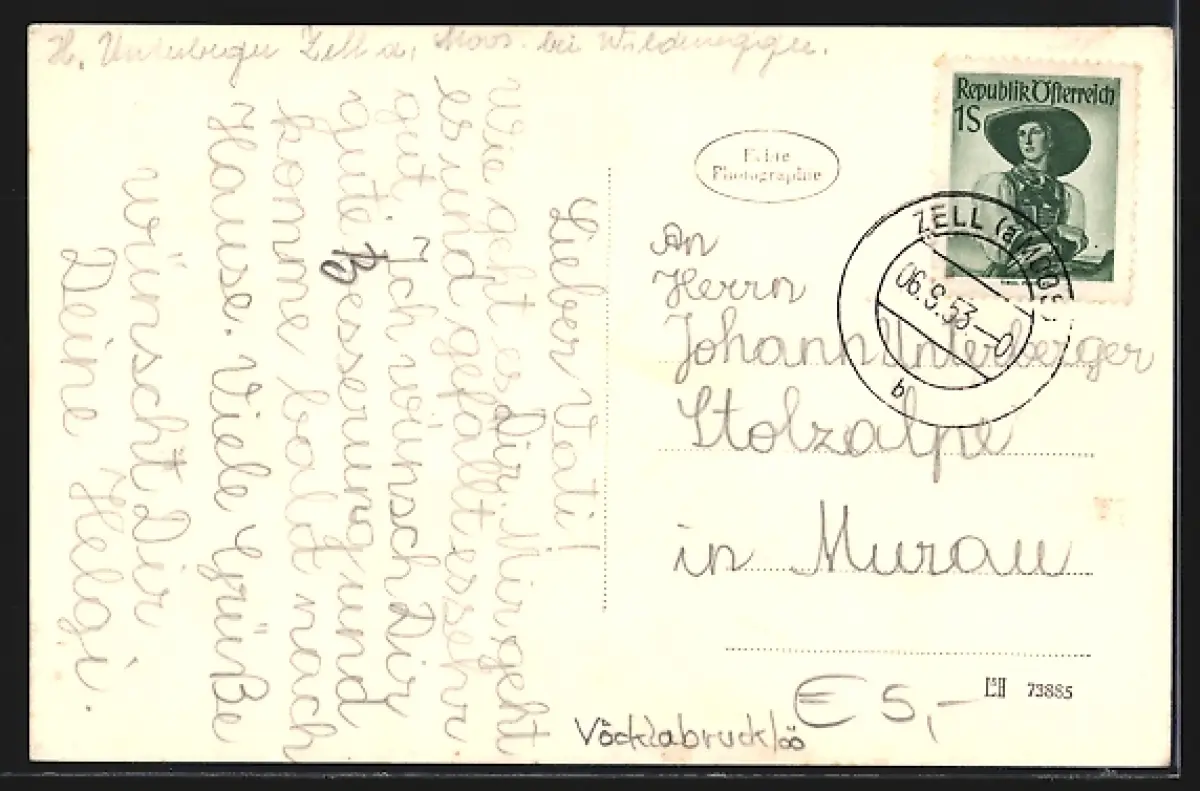 H. Unterberger Zell a. Moos. bei
Lieber Vati!
Wie geht es Dir. Mir geht
es und gefällt es sehr
gut. Ich wünsch Dir
gute Besserung und
komme bald nach
Hause. Viele Grüße
wünscht Dir
Deine Helgi.
Echte
Photographie
Republik Österreich
1S
ZELL (a. MOOS
06.9.53.–0
b
An
Herrn
Johann Unterberger
Stolzalpe
in Murau
73885
€ 5,–
Vöcklabruck/oö